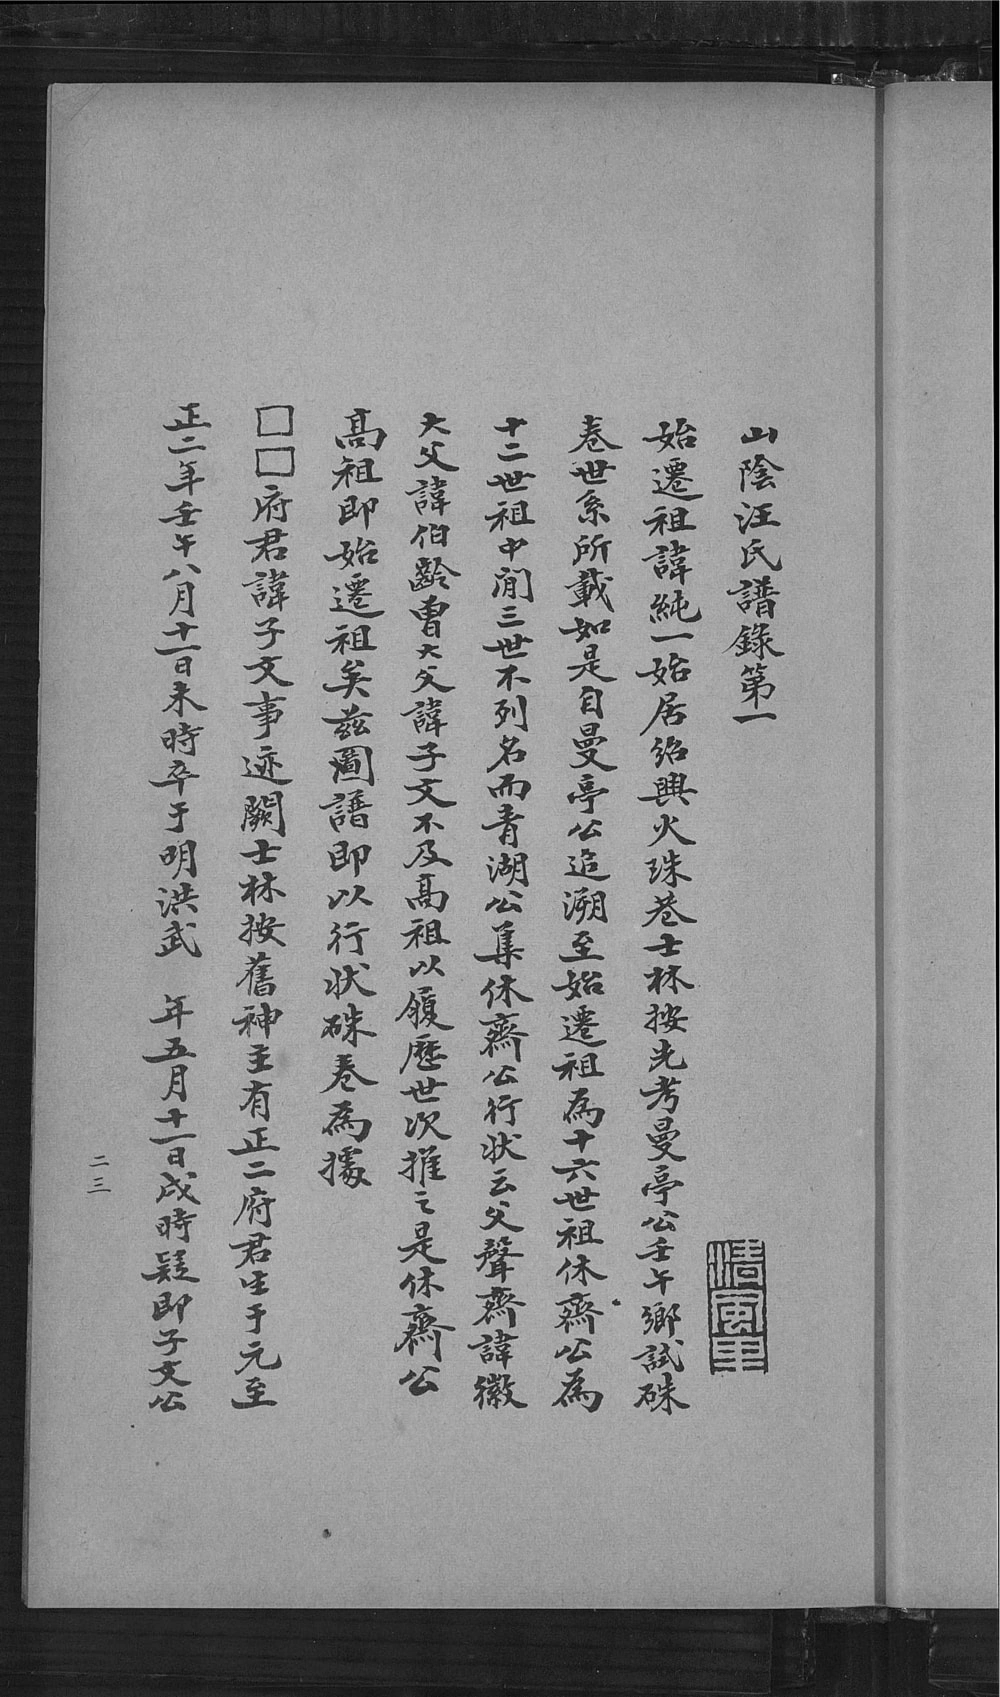 山陰汪氏譜錄第一
始遷祖諱純一始居紹興火珠巷士林按先考曼亭公壬午鄉試硃
卷世系所載如是自曼亭公追溯至始遷祖為十六世祖休齋公為
十二世祖中閒三世不列名而青湖公集休齋公行狀云父聲齋諱徽
大父諱伯齡曾大父諱子文不及高祖以履歷世次推之是休齋公
高祖即始遷祖矣茲圖譜即以行狀硃卷為據
□□府君諱子文事迹闕士林按舊神主有正二府君生于元至
正二年壬午八月十一日未時卒于明洪武　年五月十一日戌時疑即子文公
二三